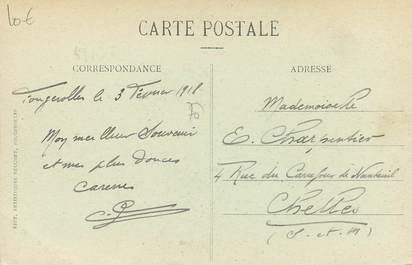 10 €
CARTE POSTALE
CORRESPONDANCE
ADRESSE
Fougerolles le 3 Février 1918
70
Mon meilleur Souvenir
et mes plus douces
Caresses
Mademoiselle
E. Charpentier
4 Rue du Carrefour de Nanteuil
Chelles
(S.-et-M)